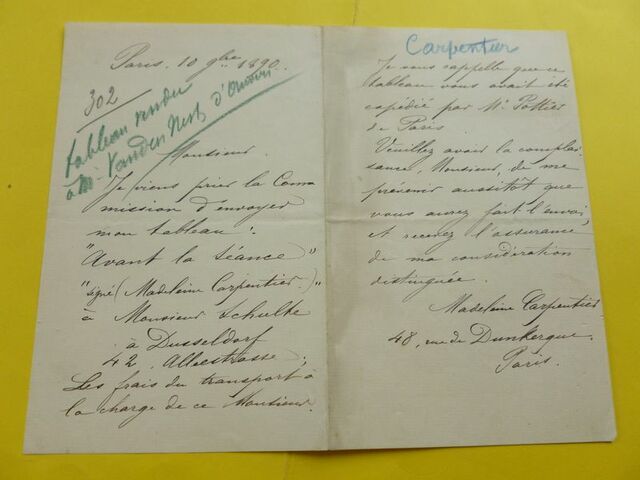 Paris. 10 9bre 1890.
302
tableau vendu
à Mr. Vanden Nest d'Anvers
Monsieur.
Je viens prier la Com
mission d'envoyer
mon tableau :
"Avant la Séance"
"signé (Madeleine Carpentier.)"
à Monsieur Schulte
à Dusseldorf
42. Alleestrasse;
Les frais du transport à
la charge de ce Monsieur.
Carpentier
Je vous rappelle que ce
tableau vous avait été
expédié par Mr Pottier
de Paris.
Veuillez avoir la complai-
sance, Monsieur, de me
prévenir aussitôt que
vous aurez fait l'envoi,
et recevez l'assurance
de ma considération
distinguée.
Madeleine Carpentier
48, rue de Dunkerque.
Paris.